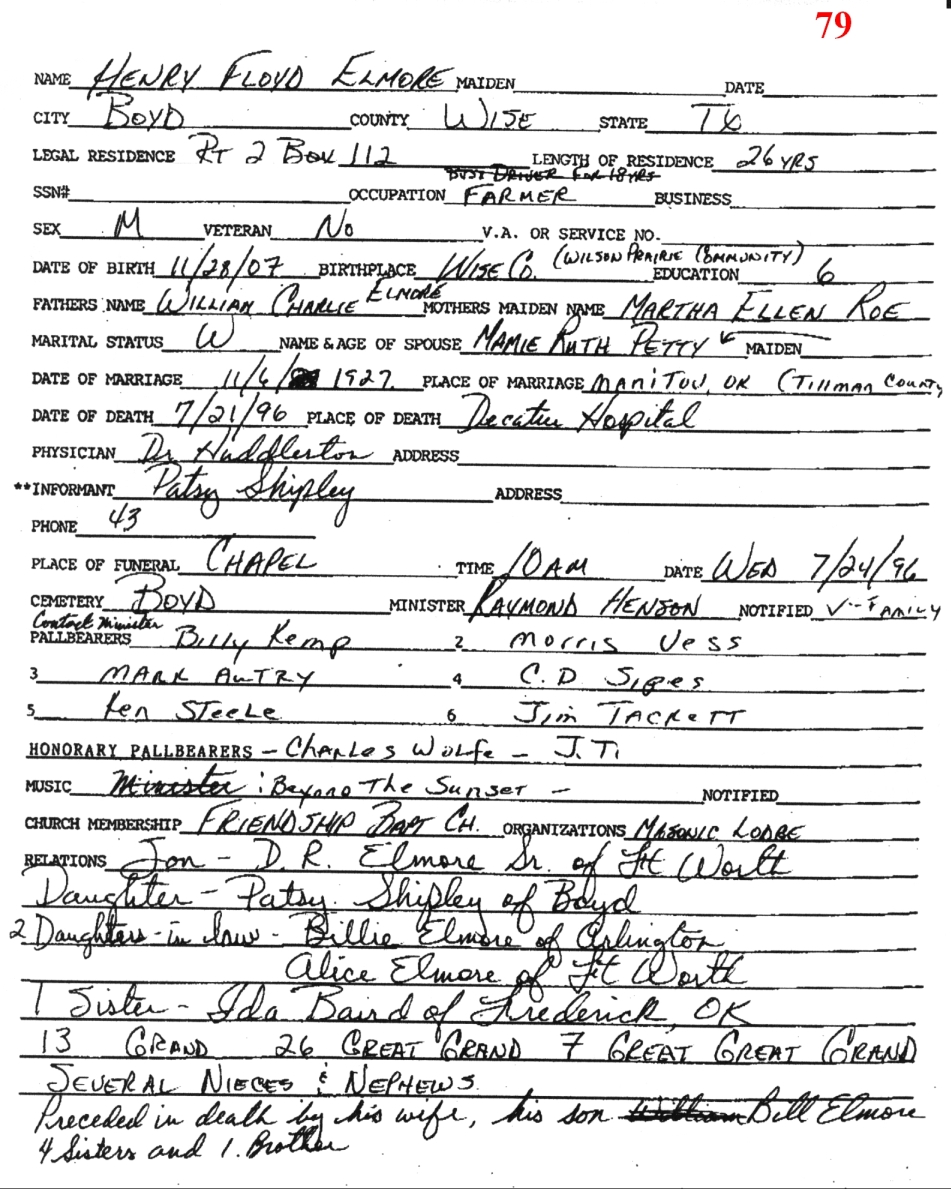 79
NAME HENRY FLOYD ELMORE MAIDEN DATE
CITY BOYD COUNTY WISE STATE TX
LEGAL RESIDENCE RT 2 BOX 112 LENGTH OF RESIDENCE 26 YRS
BUS DRIVER FOR 18 YRS
SSN# OCCUPATION FARMER BUSINESS
SEX M VETERAN No V.A. OR SERVICE NO.
(WILSON PRAIRIE COMMUNITY)
DATE OF BIRTH 11/28/07 BIRTHPLACE WISE CO. EDUCATION 6
FATHERS NAME WILLIAM CHARLIE ELMORE MOTHERS MAIDEN NAME MARTHA ELLEN ROE
MARITAL STATUS W NAME & AGE OF SPOUSE MAMIE RUTH PETTY MAIDEN
DATE OF MARRIAGE 11/6/ 1927 PLACE OF MARRIAGE MANITOU, OK (TILLMAN COUNTY
DATE OF DEATH 7/21/96 PLACE OF DEATH Decatur Hospital
PHYSICIAN Dr Huddleston ADDRESS
**INFORMANT Patsy Shipley ADDRESS
PHONE 43
PLACE OF FUNERAL CHAPEL TIME 10 AM DATE WED 7/24/96
CEMETERY BOYD MINISTER RAYMOND HENSON NOTIFIED ✓-FAMILY
Contact Minister
PALLBEARERS Billy Kemp 2 Morris Vess
3 MARK AUTRY 4 C.D Sipes
5 Ken STEELE 6 Jim TACKETT
HONORARY PALLBEARERS - CHARLES WOLFE - J.T.
MUSIC Minister : Beyond The Sunset - NOTIFIED
CHURCH MEMBERSHIP FRIENDSHIP BAPT CH. ORGANIZATIONS MASONIC LODGE
RELATIONS Son - D.R. Elmore Sr. of Ft Worth
Daughter - Patsy Shipley of Boyd
2 Daughters-in law - Billie Elmore of Arlington
Alice Elmore of Ft Worth
1 Sister - Ida Baird of Frederick, OK
13 GRAND 26 GREAT GRAND 7 GREAT GREAT GRAND
SEVERAL NIECES & NEPHEWS
Preceded in death by his wife, his son William Bill Elmore
4 Sisters and 1. Brother